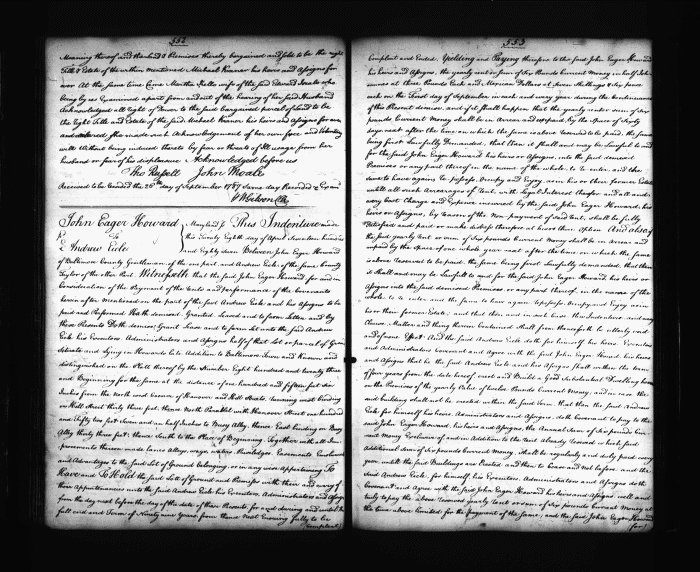 552
Meaning thereof and the Land & Premises thereby bargained and sold to be the right
Title & Estate of the within Mentioned Michael Kraner his heirs and Assigns for
ever At the same time Came Martha wife of the said Edward who
being by us Examined apart from and out of the hearing of her said Husband
Acknowledged all right of Dower to the said bargained parcel of Land to be
the right Title and Estate of the said Michael Kraner his heirs and Assigns for ever
and she made such Acknowledgment of her own free and Voluntary
will Without being induced thereto by fear or threats of Ill usage from her
husband or fear of his displeasure Acknowledged before us
Tho Russell John Moale
Received to be Recorded the 26th day of September 1787 Same day Recorded & Exam
W Gibson Clk
John Eager Howard
To
Andrew Eicle
Maryland Sc This Indenture made
this twenty Eighth day of April Seventeen hundred
and Eighty Seven Between John Eager Howard
of Baltimore County Gentleman of the one part and Andrew Eicle of the same County
Taylor of the other Part Witnesseth that the said John Eager Howard for and in
Consideration of the Payment of the Rents and Performance of the Covenants
herein after Mentioned on the part of the said Andrew Eicle and his Assigns to be
paid and Performed Hath demised Granted Leased and to farm Letten and by
these Presents Doth demise Grant Lease and to farm let unto the said Andrew
Eicle his Executors Administrators and Assigns half of that Lot or parcel of Ground
Situate and Lying in Howards late Addition to Baltimore Town and Known and
distinguished on the Plat thereof by the Number Eight hundred and twenty three
and Beginning for the same at the distance of one hundred and fifteen feet six
Inches from the North west corner of Hanover and Hill Streets running west binding
on Hill Street thirty three feet thence North Parallel with Hanover Street one hundred
and Fifty two feet Seven and an half Inches to Alley thence East binding on
Alley thirty three feet thence South to the Place of Beginning Together with all Im
provements thereon made lanes Alleys ways waters Priviledges Easements
and Advantages to the said Lot of Ground belonging or in any wise appertaining To
Have and To Hold the said Lot of Ground and Premises with their and every of
their Appurtenances unto the said Andrew Eicle his Executors Administrators and Assigns
from the day next before the day of the date of these Presents for and during and until the
full end and Term of Ninety nine Years from thence next Ensuing fully to be
Compleat
553
Compleat and Ended Yielding and Paying therefore to the said John Eager Howard
his heirs and Assigns the yearly rent or sum of Six Pounds Current Money in half Joh
annes at three Pounds Each and Mexican Dollars at Seven Shillings & Six pence
each on the First day of September in each and every year during the Continuance
of the Present demise and if it shall happen that the yearly rent or sum of Six
pounds Current Money shall be in Arrear and unpaid by the Space of Sixty
days next after the time on which the same is above reserved to be paid the same
being first Lawfully Demanded that then it shall and may be Lawful to and
for the said John Eager Howard his heirs or Assigns into the said demised
Premises or any part thereof in the name of the whole to re enter and the
same to have again to possess Occupy and Enjoy as in his or their former Estate
until all such Arrearages of rent with Legal Interest thereon and all and
every Cost Charge and Expence incurred by the said John Eager Howard his
heirs or Assigns by reason of the Non payment of said rent shall be fully
Satisfied and paid or make distress therefor at his or their Option And also if
the said yearly rent or sum of Six pounds Current Money shall be in Arrear and
unpaid by the space of one whole year next after the time on which the same
is above reserved to be paid the same being first Lawfully demanded that then
it shall and may be Lawful to and for the said John Eager Howard his heirs or
Assigns into the said demised Premises or any part thereof in the name of the
whole to re enter and the same to have again repossess Occupy and Enjoy as in
his or their former Estate and that then and in such case this Indenture and every
Clause Matter and thing therein Contained shall from thenceforth be utterly void
and of none Effect And the said Andrew Eicle doth for himself his heirs Executors
and Administrators Covenant and Agree with the said John Eager Howard his heirs
and Assigns that he the said Andrew Eicle and his Assigns shall within the term
of four years from the date hereof erect and Build a Good Substantial Dwelling house
on the Premises of the yearly Value of twelve Pounds Current Money and in case the
said building shall not be erected within the said term that then the said Andrew
Eicle for himself his heirs Administrators and Assigns doth Covenant to pay to the
said John Eager Howard his heirs and Assigns the Annual Sum of Six pounds Cur
rent Money Exclusive of and in Addition to the Rent already reserved which said
Additional Sum of Six pounds Current Money Shall be regularly and duly paid every
year until the said Buildings are Erected and then to Cease and Not before and the
said Andrew Eicle for himself his Executors Administrators and Assigns do th
Covenant and Agree with the said John Eager Howard his heirs and Assigns well and
truly to pay the above reserved yearly rent or sum of Six pounds Current Money at
the time above limited for the payment of the same and the said John Eager Howard
for